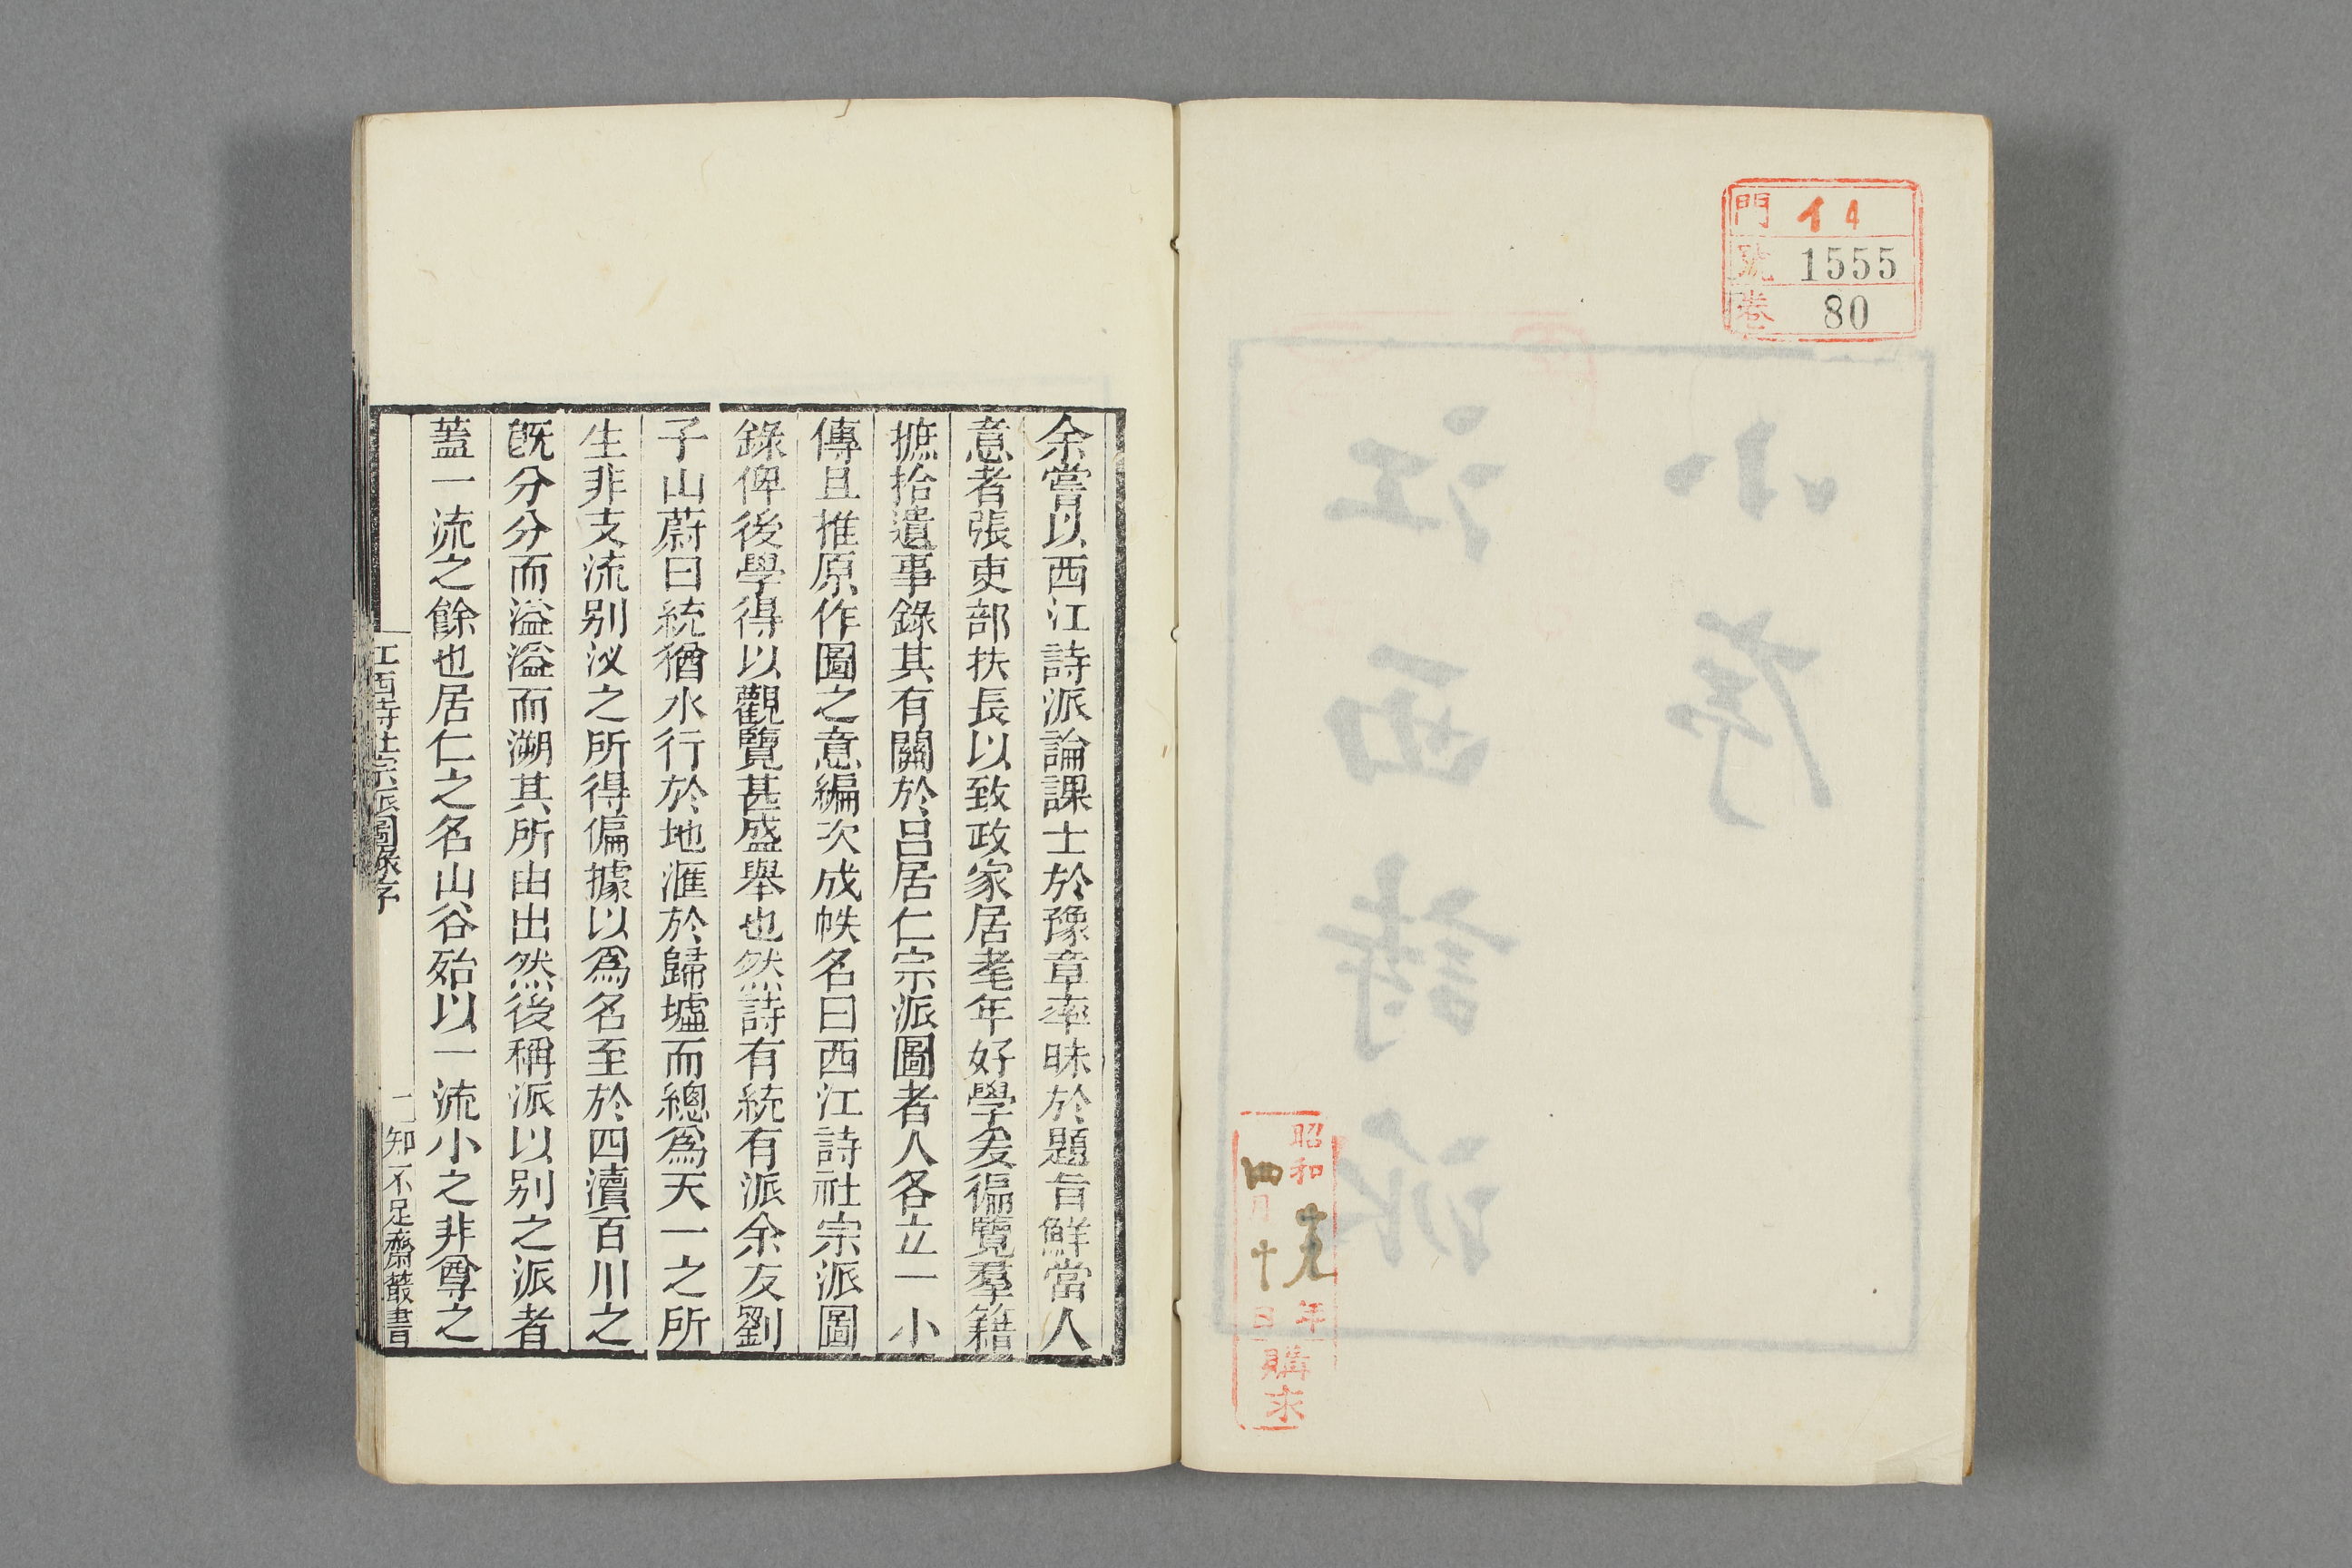 門 イ4
號 1555
卷 80
昭和十九年
四月十日
購求
余嘗以西江詩派論課士於豫章率昧於題旨鮮當人
意者張吏部扶長以致政家居耄年好學爰徧覽羣籍
摭拾遺事錄其有關於呂居仁宗派圖者人各立一小
傳且推原作圖之意編次成帙名曰西江詩社宗派圖
錄俾後學得以觀覽甚盛舉也然詩有統有派余友劉
子山蔚曰統猶水行於地滙於歸墟而總爲天一之所
生非支流别汊之所得偏據以爲名至於四瀆百川之
旣分分而溢溢而溯其所由出然後稱派以别之派者
蓋一流之餘也居仁之名山谷殆以一流小之非尊之
江西詩社宗派圖錄序
一
知不足齋叢書